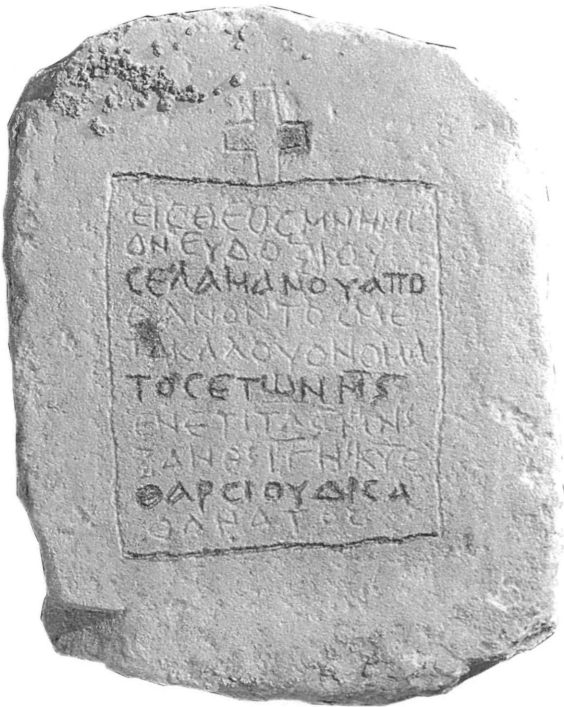 ΕΙϹΘΕΟϹΜΝΗΜΙ
ΟΝΕΥΔΟΞΙΟΥ
ϹΕΛΑΜΑΝΟΥΑΠΟ
ΘΑΝΟΝΤΟϹΜΕ
ΤΑΚΑΛΟΥΟΝΟΜΑ
ΤΟϹΕΤΩΝΜϚ
ΕΝΕΤΙΤΑϚΜΗΝϚ
ΞΑΝΘϚΙΓΗ
ΘΑΡϹΙΟΥΔΙϹΑ
ΘΑΝΑΤΟϹ